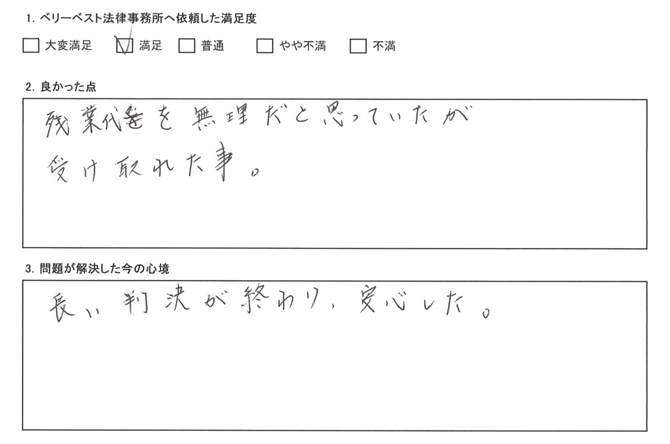 1. ベリーベスト法律事務所へ依頼した満足度
大変満足 満足 普通 やや不満 不満
2. 良かった点
残業代を無理だと思っていたが
受け取れた事。
3. 問題が解決した今の心境
長い判決が終わり、安心した。